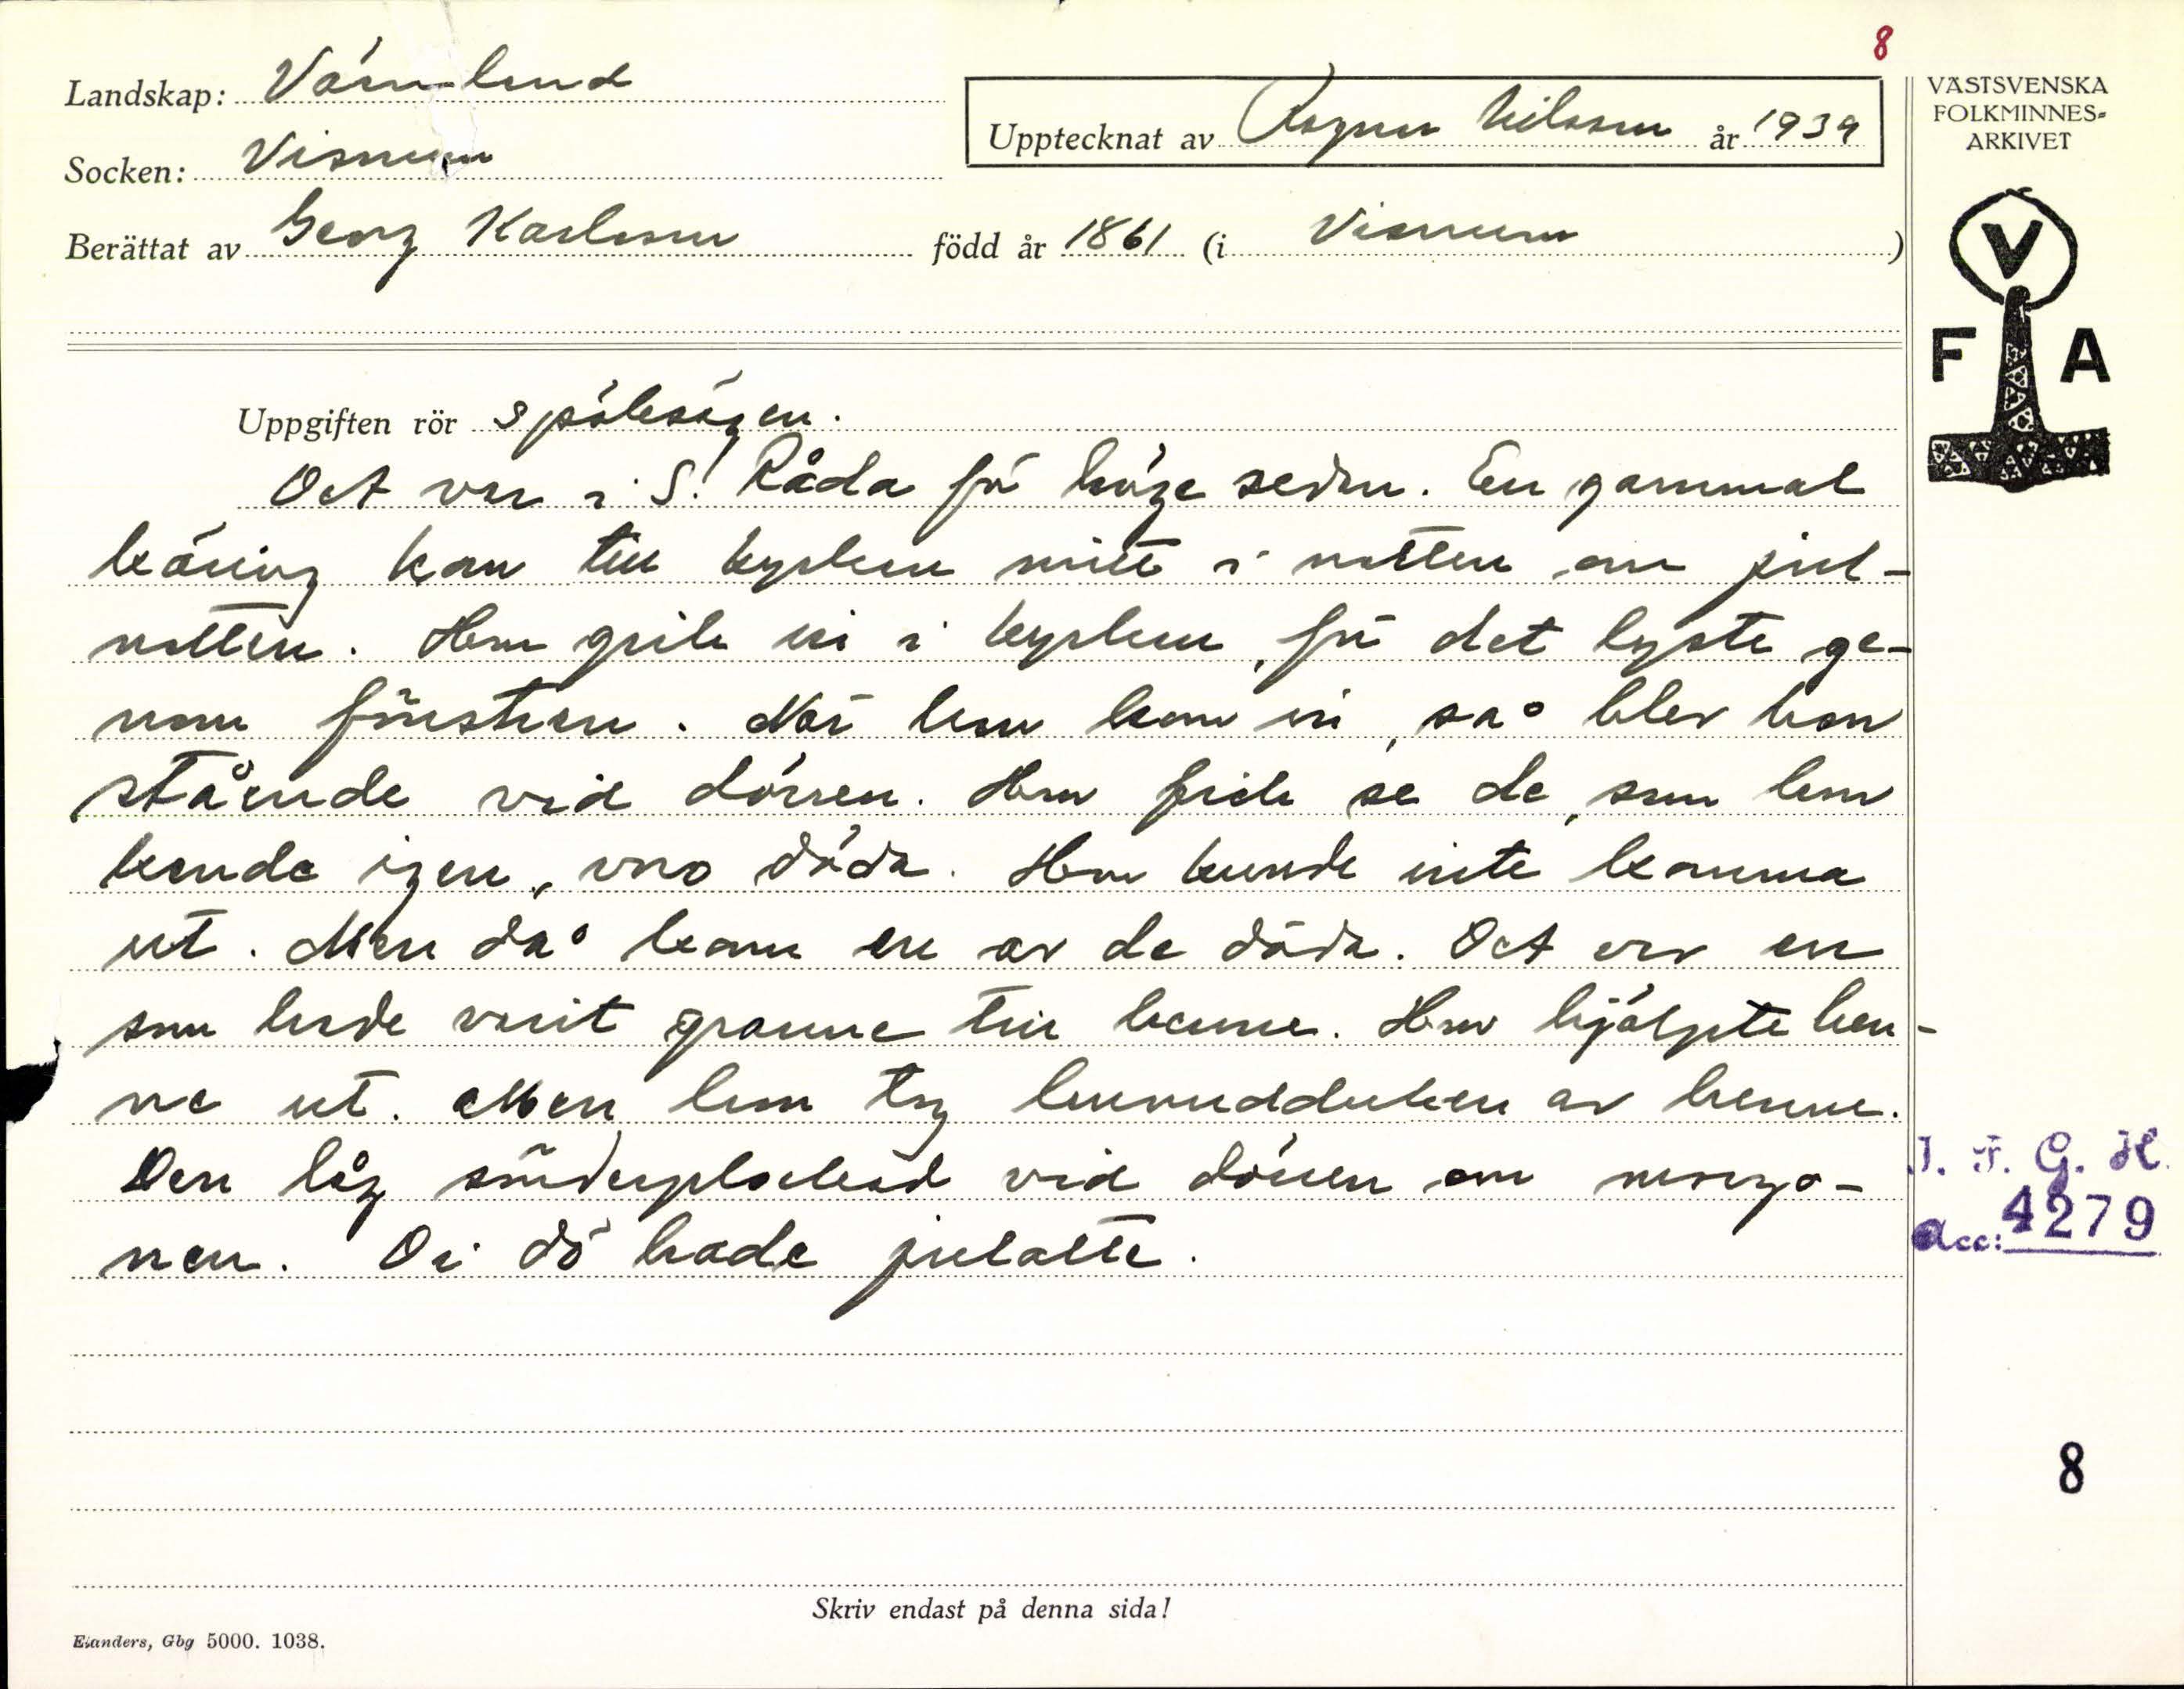 8
Landskap: Värmland
Upptecknat av Ragnar Nilsson år 1939
VÄSTSVENSKA
FOLKMINNES-
ARKIVET
Socken: Visnum
Berättat av Georg Karlsson född år 1861 (i Visnum )
V
F A
Uppgiften rör spöksägen.
Det var i S. Råda för länge sedan. En gammal
käring kom till kyrkan mitt i natten om jul-
natten. Hon gick in i kyrkan, för det lyste ge-
nom fönstren. När hon kom in, så blev hon
stående vid dörren. Hon fick se de, som hon
kände igen, voro döda. Hon kunde inte komma
ut. Men då kom en av de döda. Det var en
som hade varit granne till henne. Hon hjälpte hen-
ne ut. Men hon tog huvudduken av henne.
Den låg sönderplockad vid dörren om morgo-
nen. Di dö hade julotte.
I. F. G. H.
Acc: 4279
8
Skriv endast på denna sida!
Elanders, Gbg 5000. 1038.